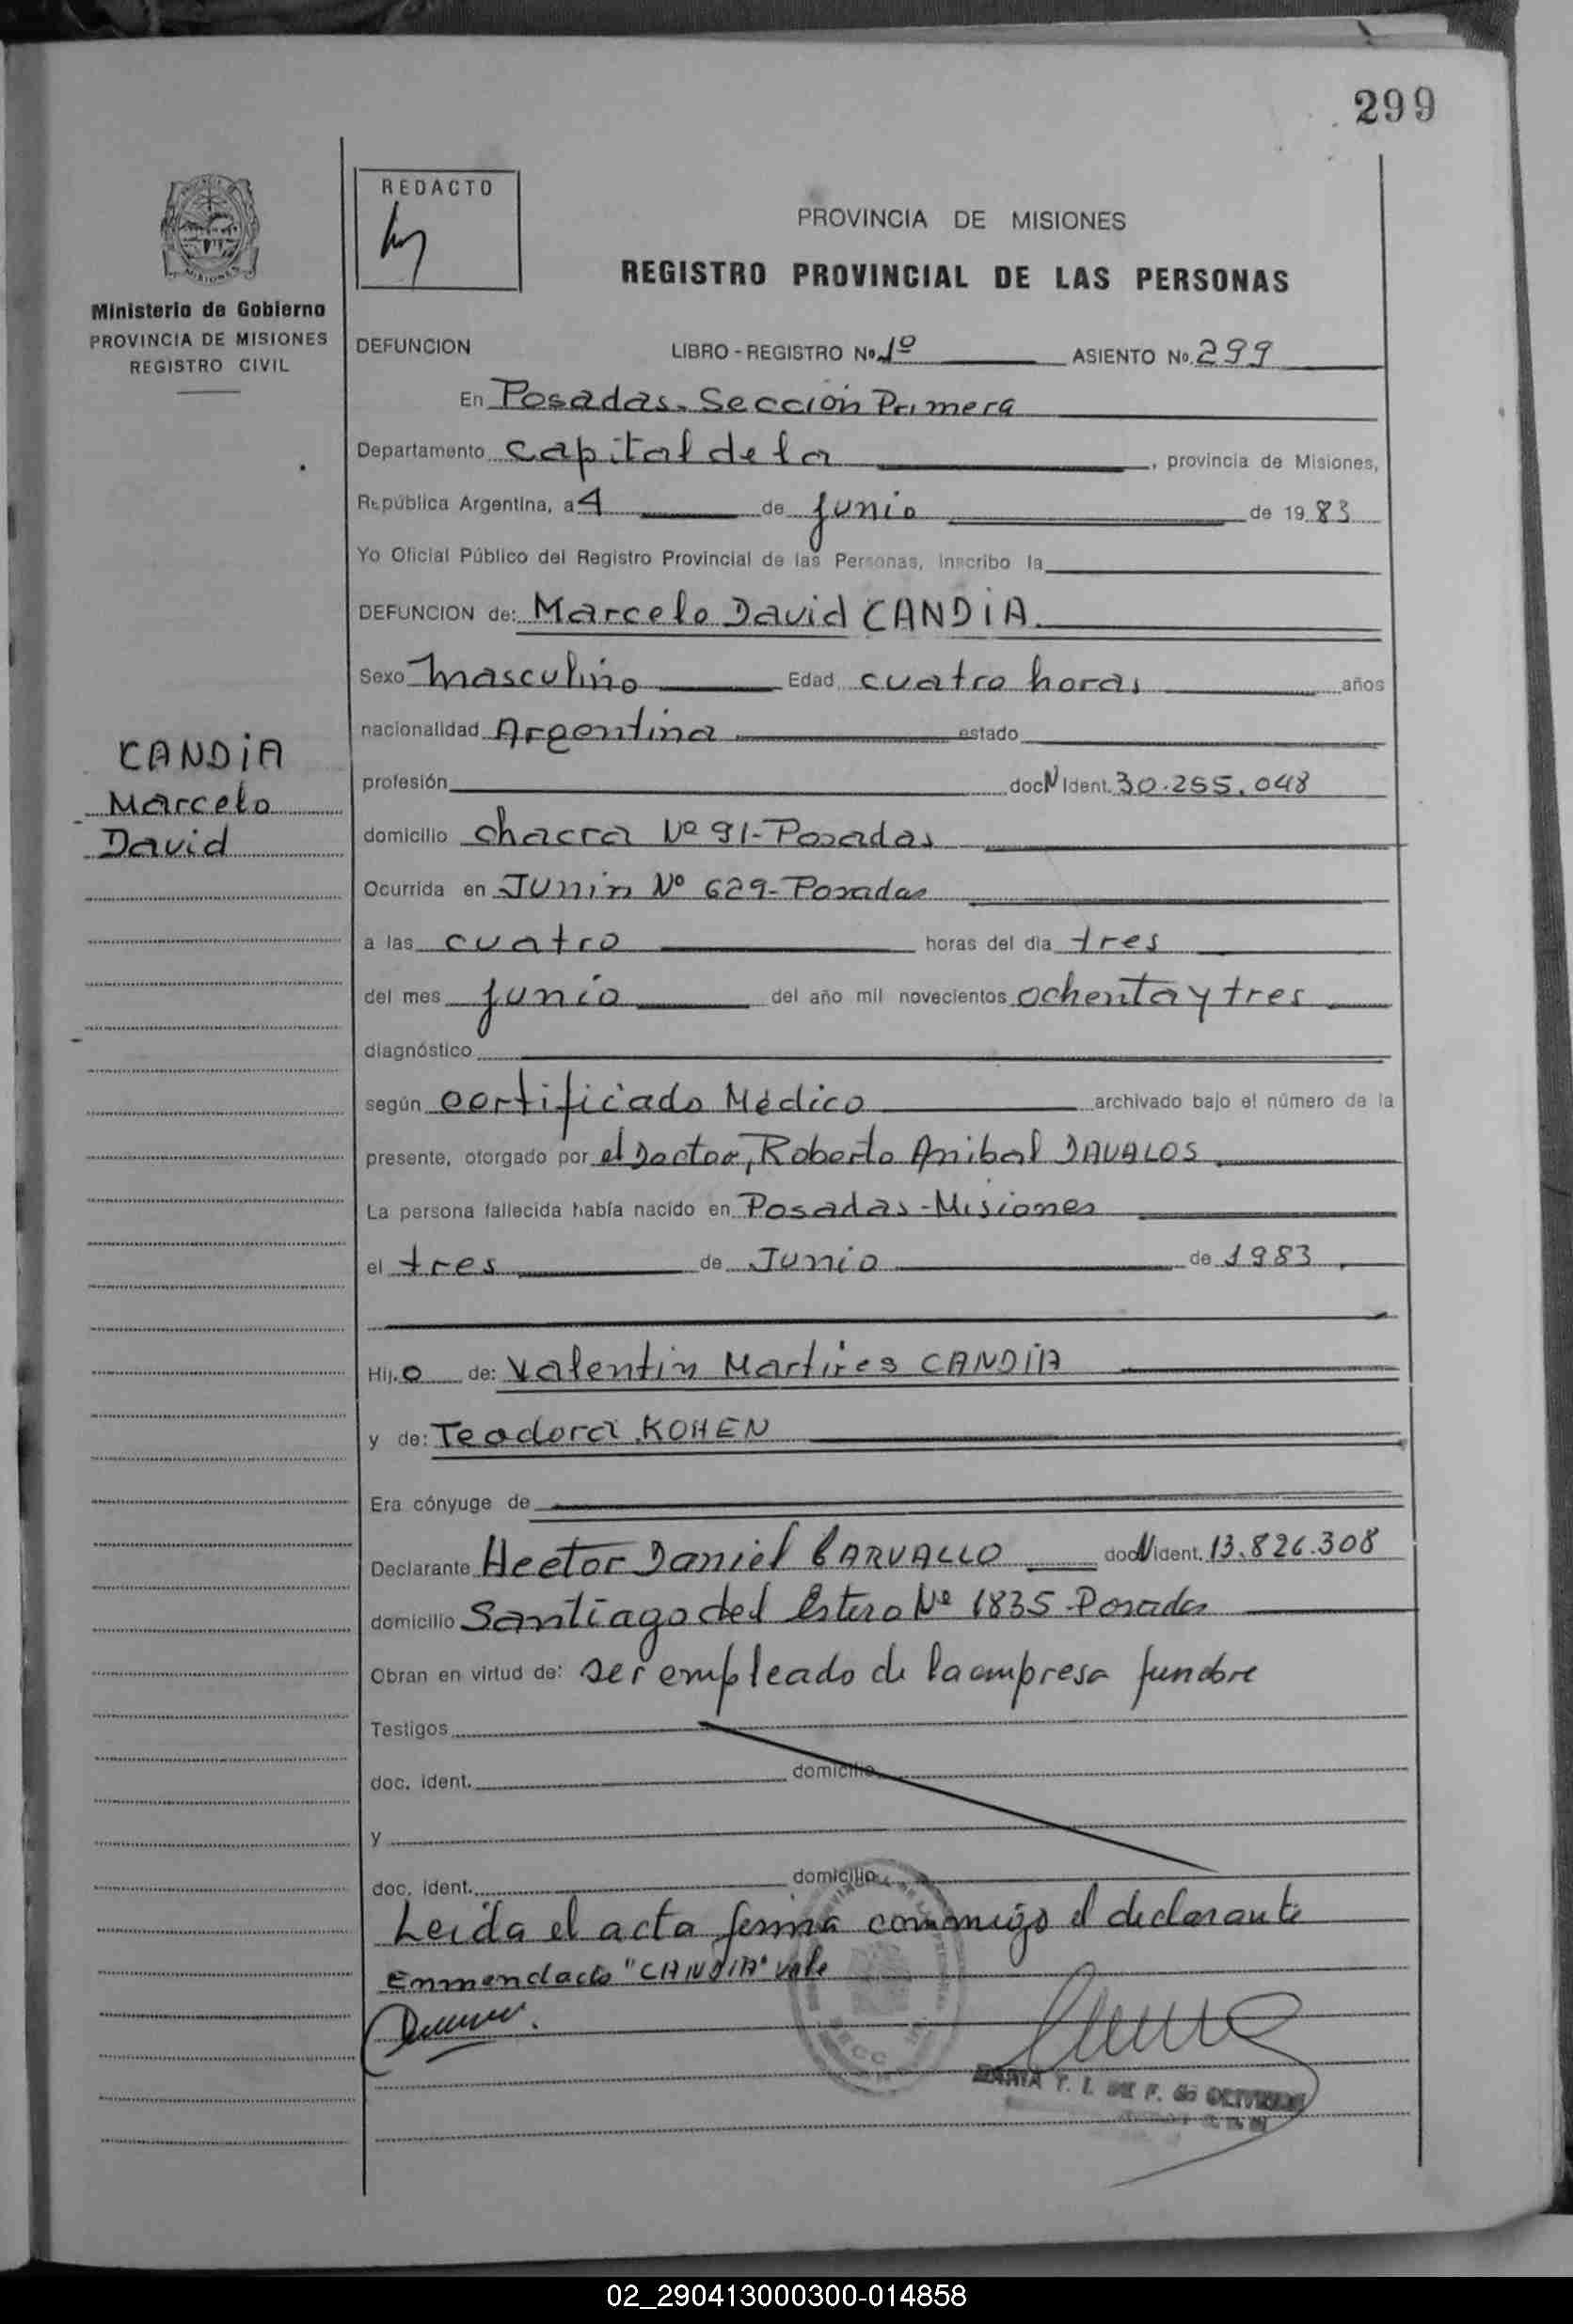 299
REDACTO
PROVINCIA DE MISIONES
REGISTRO PROVINCIAL DE LAS PERSONAS
Ministerio de Gobierno
PROVINCIA DE MISIONES
REGISTRO CIVIL
DEFUNCION LIBRO - REGISTRO No. 1º ASIENTO No. 299
En Posadas. Sección Primera
Departamento Capital de la , provincia de Misiones,
República Argentina, a 4 de junio de 19 83
Yo Oficial Público del Registro Provincial de las Personas, inscribo la
DEFUNCION de: Marcelo David CANDIA
Sexo masculino Edad cuatro horas años
nacionalidad Argentina estado
profesión doc N Ident. 30.255.048
CANDIA
Marcelo
David
domicilio chacra Nº 91-Posadas
Ocurrida en Junin Nº 629-Posadas
a las cuatro horas del día tres
del mes junio del año mil novecientos ochenta y tres
diagnóstico
según certificado Médico archivado bajo el número de la
presente, otorgado por el Doctor, Roberto Anibal DAVALOS
La persona fallecida había nacido en Posadas-Misiones
el tres de Junio de 1983
Hij o de: Valentin Martires CANDIA
y de: Teodora KOHEN
Era cónyuge de
Declarante Hector Daniel CARVALLO doc N ident. 13.826.308
domicilio Santiago del Estero Nº 1835-Posadas
Obran en virtud de: ser empleado de la empresa funebre
Testigos
doc. ident. domicilio
y
doc. ident. domicilio
Leida el acta firma conmigo el declarante
Enmendado "CANDIA" vale
02_290413000300-014858